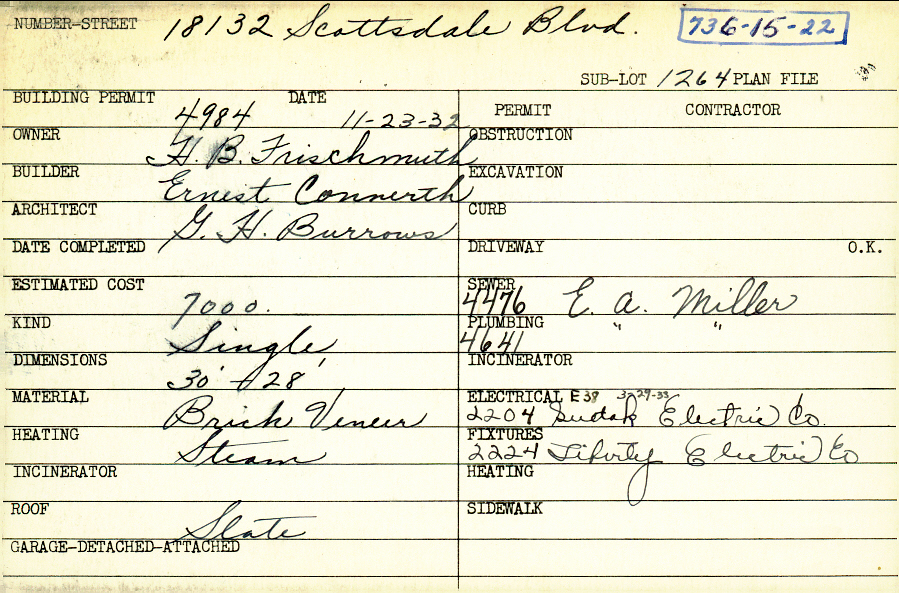 NUMBER-STREET 18132 Scottsdale Blvd. 736-15-22
SUB-LOT 1264 PLAN FILE
BUILDING PERMIT 4984 DATE 11-23-32
OWNER H. B. Frischmuth
BUILDER Ernest Connerth
ARCHITECT G. H. Burrows
DATE COMPLETED
ESTIMATED COST 7000.
KIND Single
DIMENSIONS 30' + 28'
MATERIAL Brick Veneer
HEATING Steam
INCINERATOR
ROOF Slate
GARAGE-DETACHED-ATTACHED
PERMIT CONTRACTOR
OBSTRUCTION
EXCAVATION
CURB
DRIVEWAY O.K.
SEWER
4476 E. A. Miller
PLUMBING " "
4641
INCINERATOR
ELECTRICAL E38 3-29-33
2204 Electric Co.
FIXTURES
2224 Liberty Electric Co
HEATING
SIDEWALK